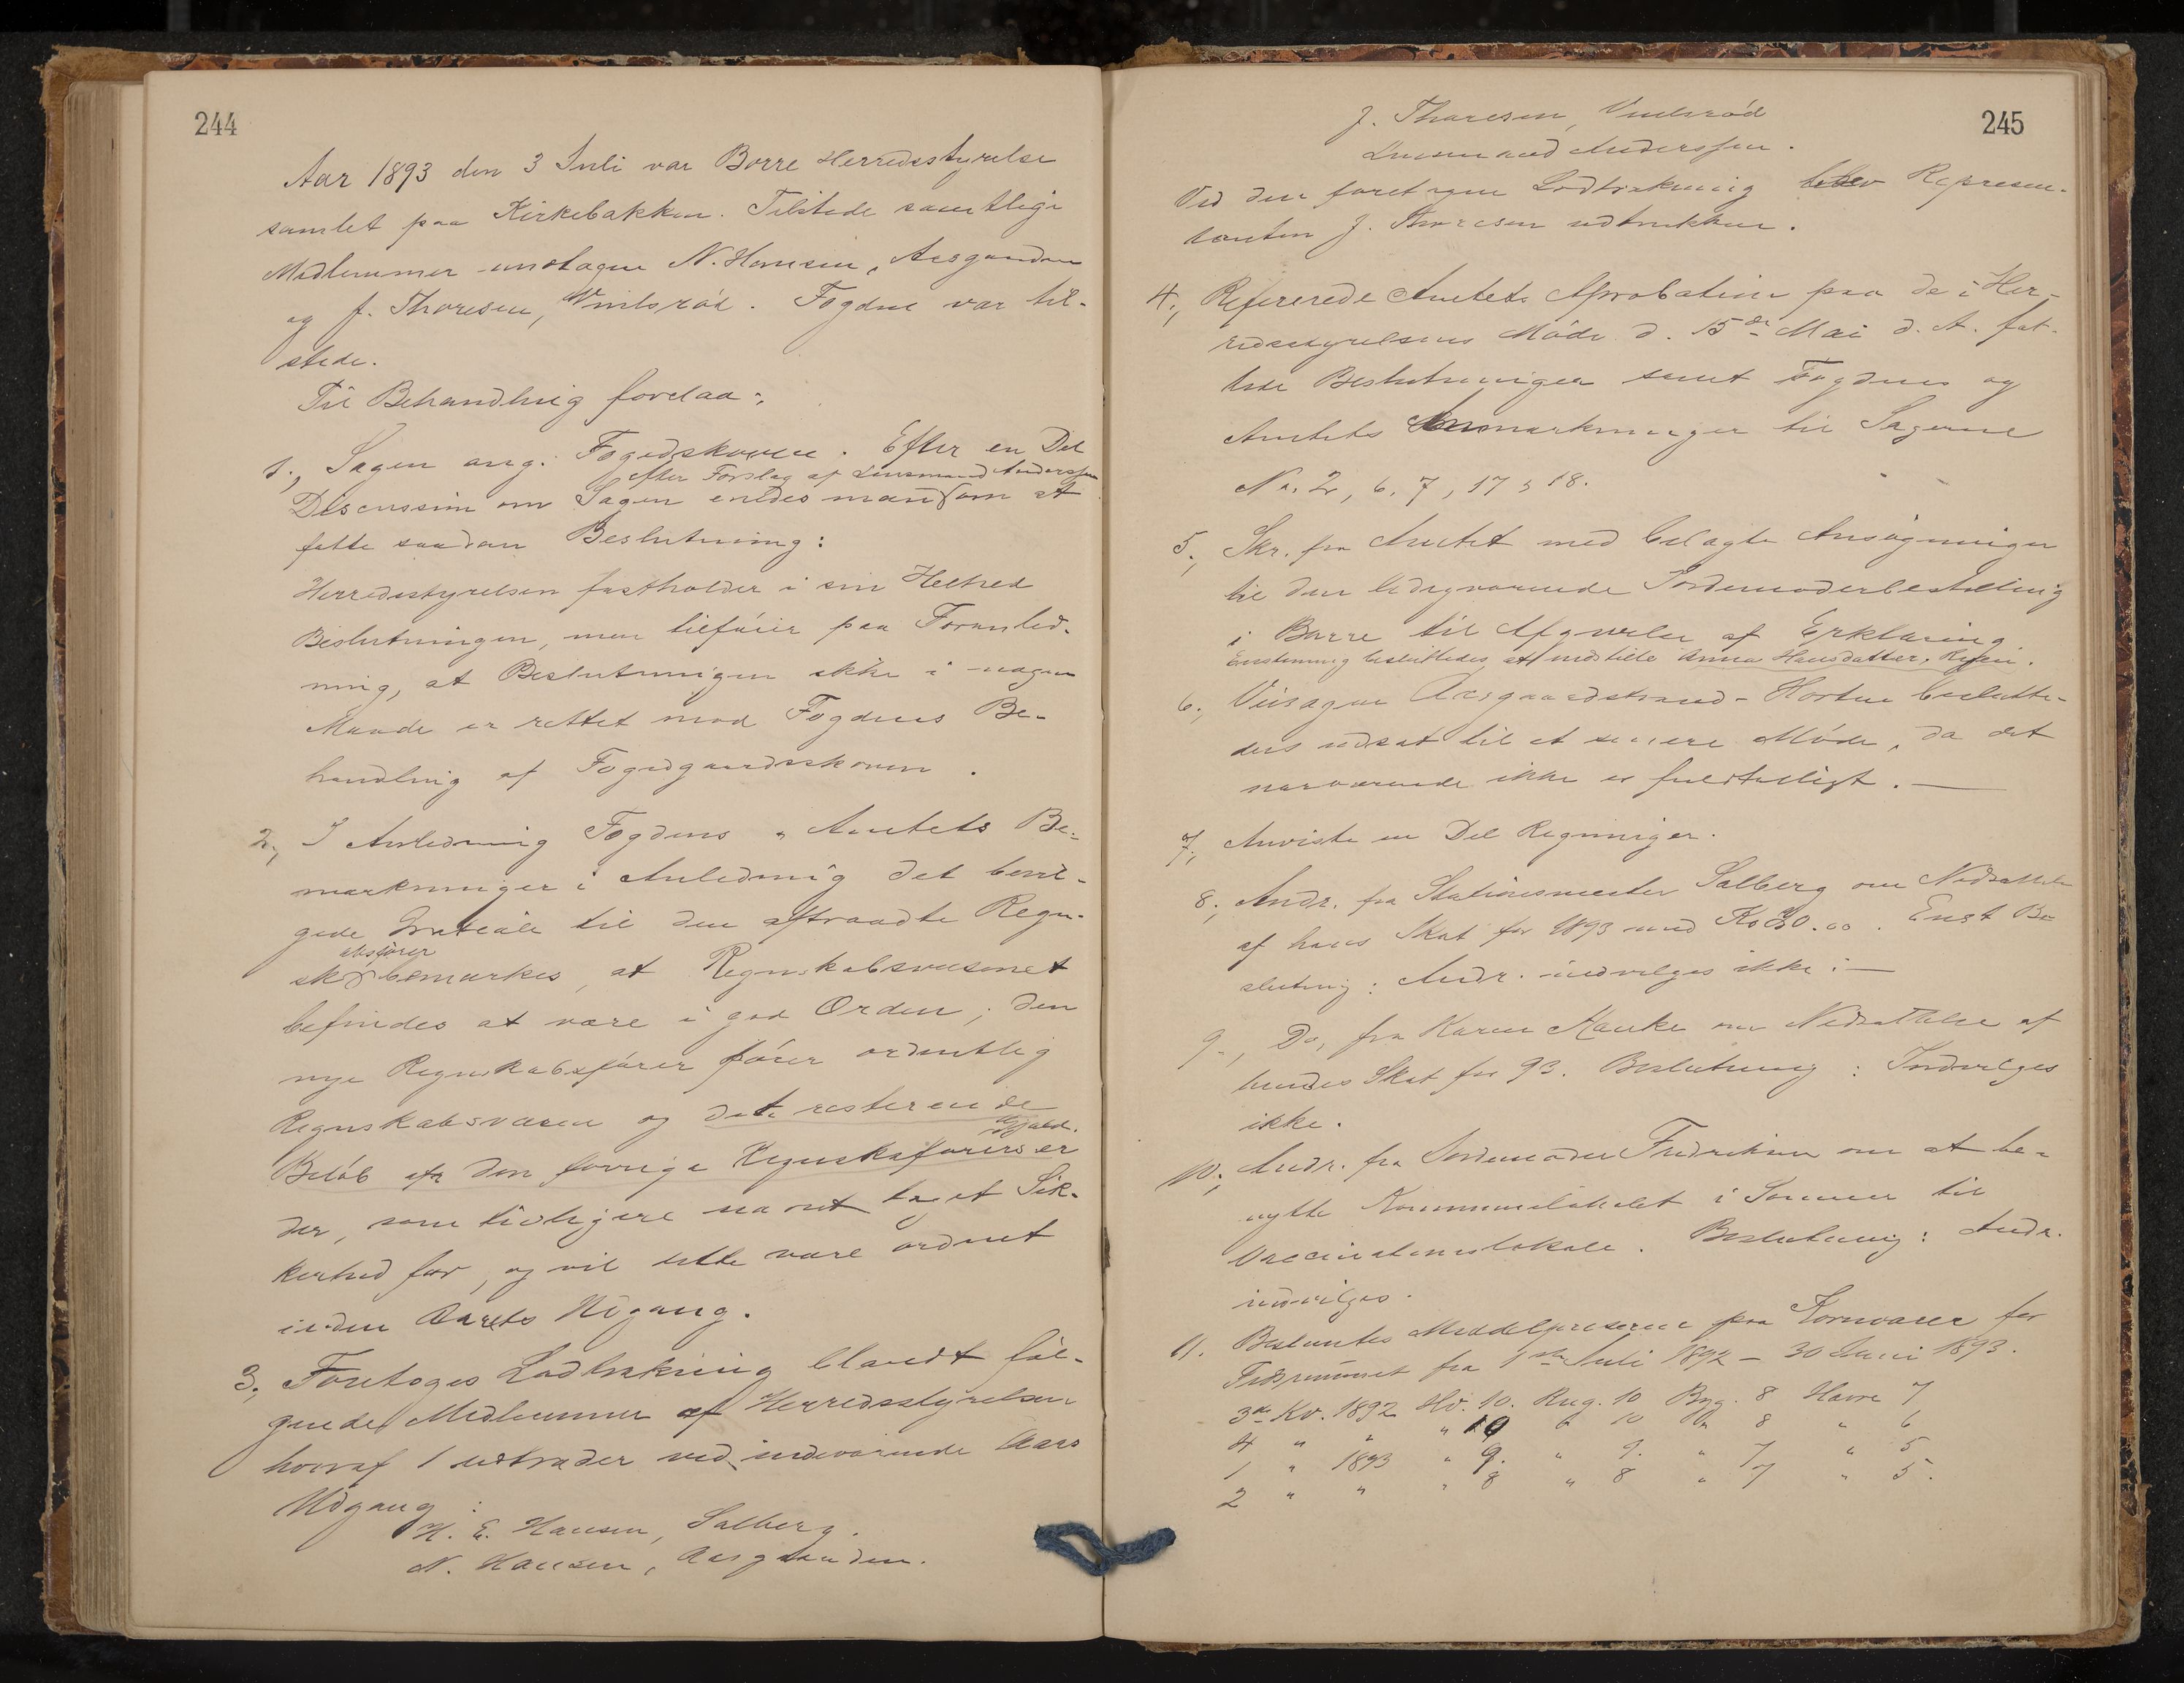 244
Aar 1893 den 3 Juli var Borre Herredsstyrelse
samlet paa Kirkebakken. Tilstede samtlige
Medlemmer undtagen N. Hansen, Aasgaarden
og J. Thoresen, Vindsröd. Fogden var til-
stede.
Til Behandling forelaa:
1., Sagen ang. Fogedskoven. Efter en Del
efter Forslag af Lensmand Anderssen
Discussion om Sagen enedes man om at
fatte saadan Beslutning:
Herredsstyrelsen fastholder i sin Helhed
Beslutningen, men tilföier paa Foranled-
ning, at Beslutningen ikke i nogen
Maade er rettet mod Fogdens Be-
handling af Fogedgaardsskoven.
2., I Anledning Fogdens & Amtets Be-
mærkninger i Anledning det bevil-
gede Gratiale til den aftraadte Regn-
absförer
sk bemærkes, at Regnskabsvæsenet
befindes at være i god Orden; den
nye Regnskabsförer förer ordentlig
Regnskabsvæsen og det resterende
Belöb fra den forrige Regnskaförers er
der, som tidligere nævnt taget Sik-
kerhed for, og vil dette være ordnet
inden Aarets Udgang.
3., Foretoges Lodtrækning blandt föl-
gende Medlemmer af Herredsstyrelsen
hvoraf 1 udtræder ved indeværende Aars
Udgang:
H. E. Hansen, Solberg.
N. Hansen, Aasgaarden.
245
J. Thoresen, Vindsröd
Lensmand Anderssen.
Ved den foretagne Lodtrækning blev Represen-
tanten J. Thoresen udtrukken.
4., Refererede Amtets Aprobation paa de i Her-
redsstyrelsens Möde d. 15de Mai d. A. fat-
tede Beslutninger samt Fogdens og
Amtets Anmærkninger til Sagerne
No. 2, 6, 7, 17 & 18.
5., Skr. fra Amtet med bilagte Ansögninger
til den ledigværende Jordemoderbestilling
i Borre til Afgivelse af Erklæring
Enstemmig besluttedes at indstille Anna Hansdatter,
6., Veisagen Aasgaardstrand - Horten beslutte-
des udsat til et senere Möde, da det
nærværende ikke er fuldtalligt.
7., Anviste en Del Regninger.
8., Andr. fra Stationsmester Solberg om Nedsættelse
af hans Skat for 1893 med Kr 30.00. Enst Be-
slutning: Andr. indvilges ikke.
9., Do, fra Karen Hanke om Nedsættelse af
hendes Skat for 93. Beslutning: Indvilges
ikke.
10., Andr. fra Jordemoder Fredriksen om at be-
nytte Kommunelokalet i Sommer til
Vaccinationslokale. Beslutning: Andr.
indvilges.
11. Bestemtes Middelpriserne paa Kornvarer for
Tidsrummet fra 1ste Juli 1892 - 30 Juni 1893.
3de Kv. 1892 Hv. 10. Rug. 10 Byg. 8 Havre 7
4 " " " 10 " 10 " 8 " 6
1 " 1893 " 9. " 9. " 7 " 5
2 " " " 8 " 8 " 7 " 5.